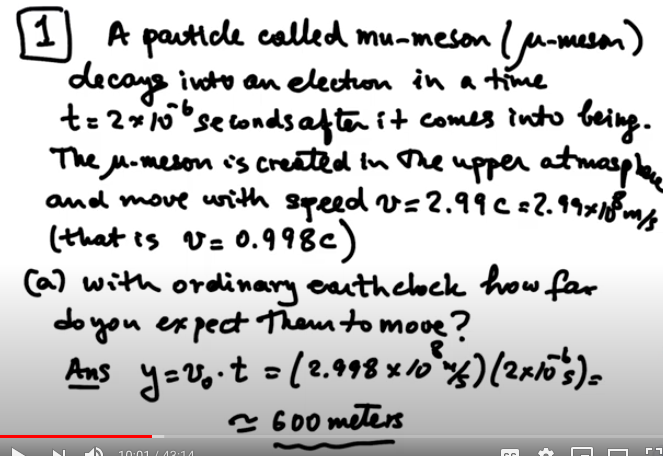 1 A particle called mu-meson (μ-meson)
decays into an electron in a time
t = 2×10⁻⁶ seconds after it comes into being.
The μ-meson is created in the upper atmasphere
and move with speed v = 2.99 c = 2.99×10⁸ m/s
(that is v = 0.998c)
(a) with ordinary earth clock how far
do you expect them to move?
Ans y = v₀ · t = (2.998 × 10⁸ m/s)(2×10⁻⁶ s) =
≃ 600 meters
10:01 / 43:14
CC